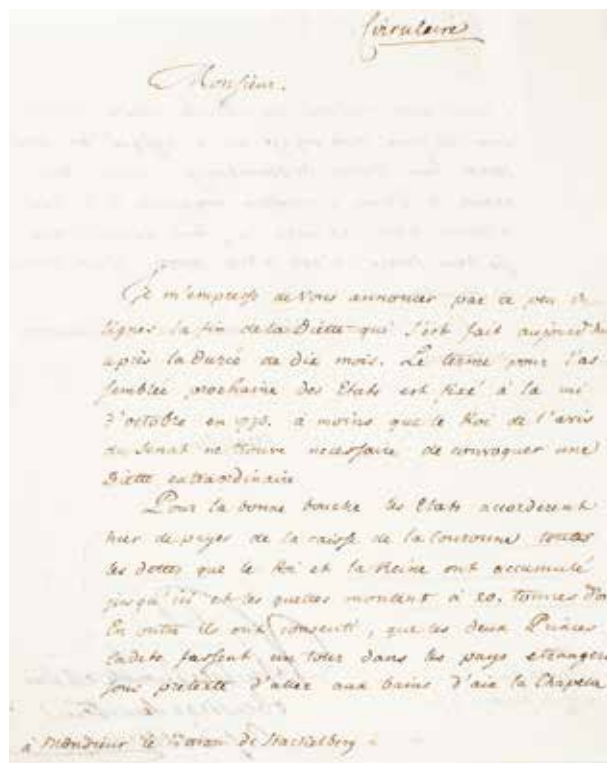 Circulaire
Monsieur.
Je m'empresse de Vous annoncer par ce peu de
lignes la fin de la Diette qui s'est fait aujourd'hu
après la Durée de dix mois. Le terme pour l'as-
semblée prochaine des Etats est fixé à la mi
d'octobre en à moins que le Roi de l'avis
du Senat ne trouve necessaire de convoquer une
Diette extraordinaire
Pour la bonne bouche les Etats accorderent
hier de payer de la caisse de la Couronne toutes
les dettes que le Roi et la Reine ont accumulé
jusqu'ici et les quelles montent à 20. tonnes d'or
En outre ils ont consenti, que les deux Princes
Cadets fassent un tour dans les pays etrangers
sous pretexte d'aller aux bains d'aix la Chapelle
à Monsieur le Baron de Stackelberg